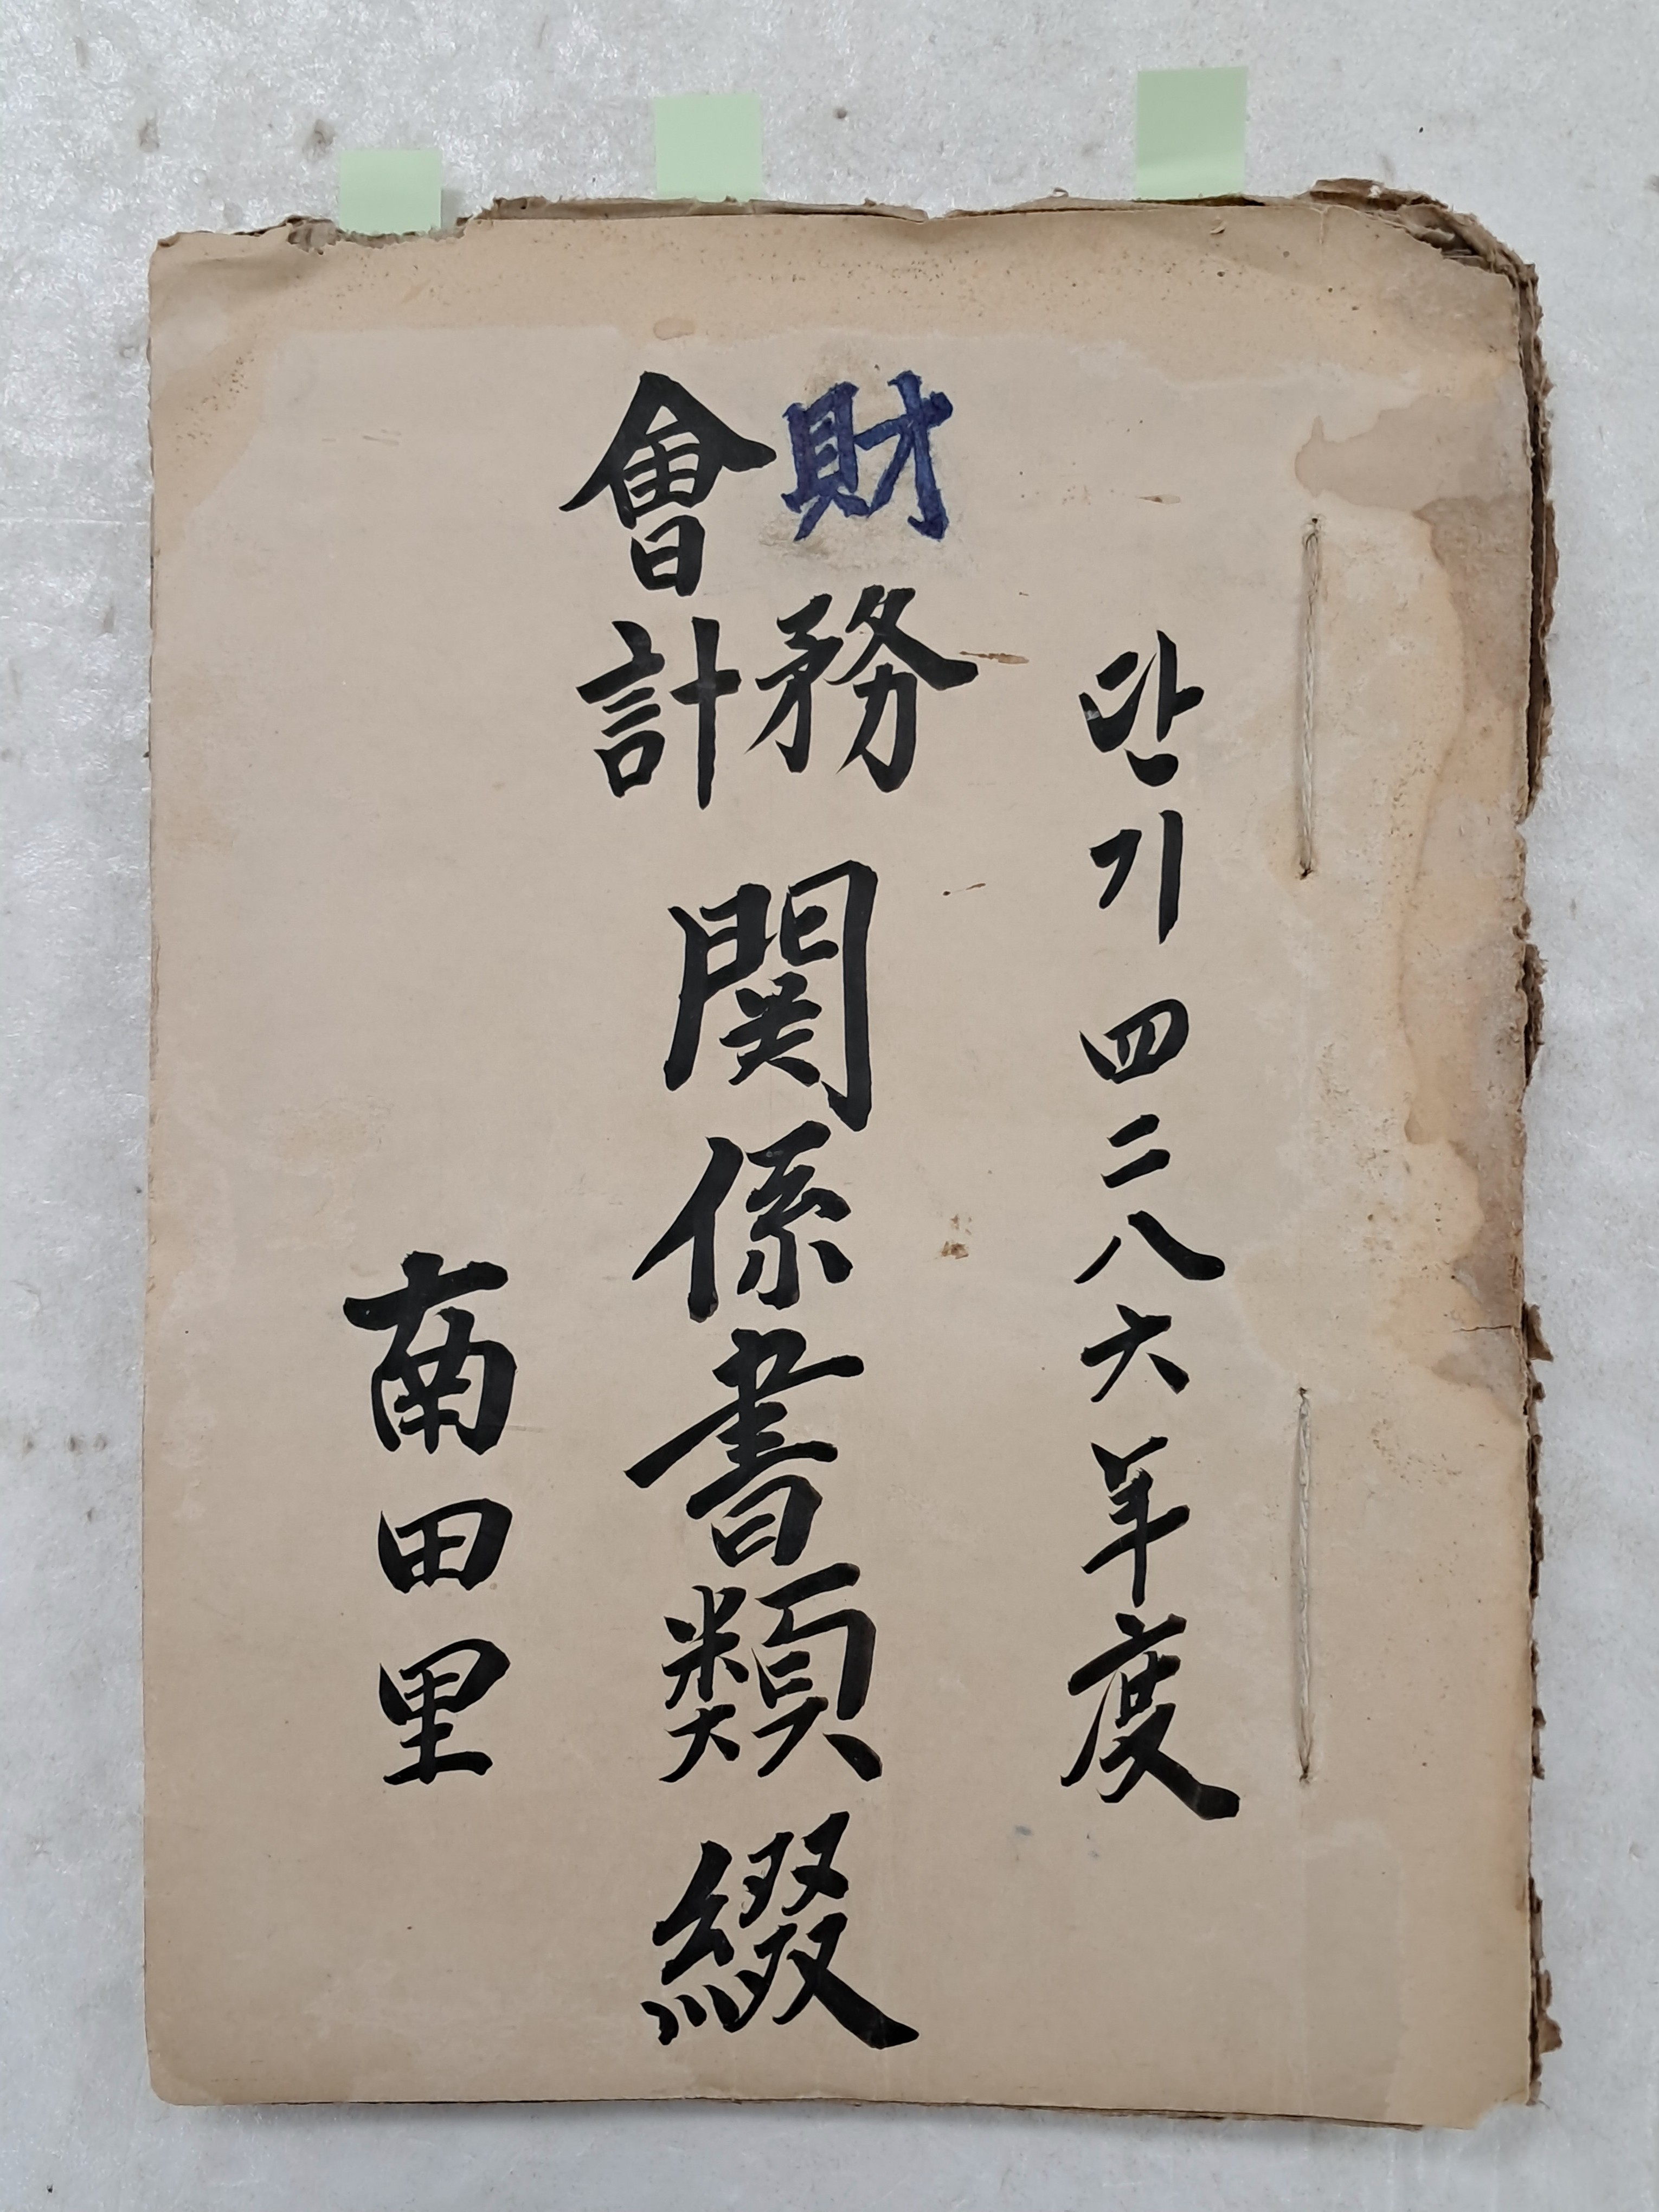 단기 四二八六年度
財務
會計
関係書類綴
南田里